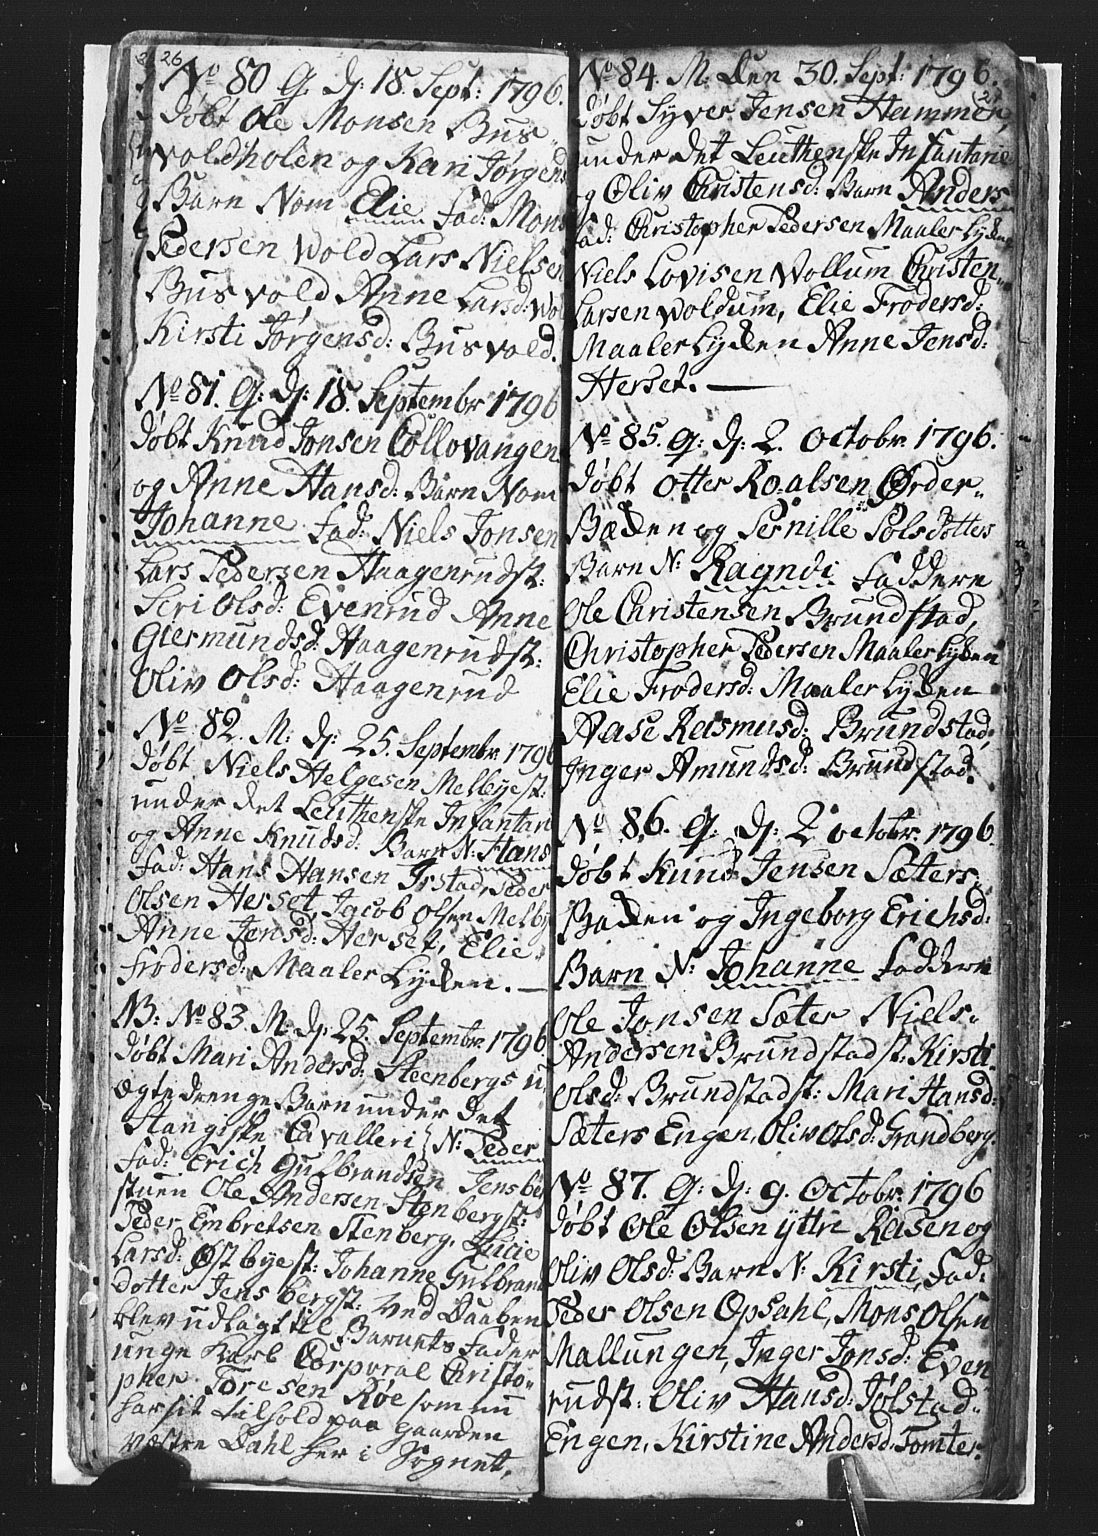 26
No 80 G. D: 18. Sept: 1796.
døbt Ole Monsen Bus
voldholen og Kari Jørgens
Barn Nom Elie fad: Mons
Pedersen Wold Lars Nielsen
Busvold Anne Larsd: Wol
Kirsti Jørgensd: Busvold.
No 81. G: D: 18. Septembr 1796
døbt Knud Jonsen Collovangen
og Anne Hansd: Barn Nom
Johanne fad: Niels Jonsen
Lars Pedersen Haagenrudst:
Seri Olsd: Evenrud Anne
Giermundsd: Haagenrudst:
Oliv Olsd: Haagenrud
No 82. M: D: 25. Septembr 1796
døbt Niels Helgesen Melbyest:
under det Leuthenske Infantari
og Anne Knudsd: Barn N: Hans
fad: Hans Hansen Irstad, Peder
Olsen Herset, Jacob Olsen Melby
Anne Jensd: Herset, Elie
Frodersd: Maalerlykken.
NB: No 83. M. D: 25. Septembr 1796
døbt Mari Andersd: Steenbergs u
ægte drenge Barn under det
Stangeske Cavalleri N: Peder
fad: Erich Gulbrandsen Jensber
stuen Ole Andersen Stenbergst:
Peder Embretsen Stenberg. Lucie
Larsd: Østbyest: Johanne Gulbrand
dotter Jensbergst: Ved Daaben
blev udlagt til Barnets Fader
unge Karl Corporal Christo-
pher Toresen Røe som nu
har sit Tilhold paa gaarden
Væstre Dahl her i Sognet.
No 84. M: den 30. Sept: 1796.
døbt Syver Jensen Hammer,
under det Leuthenske Infantarie
og Oliv Christensd: Barn Anders
fad: Christopher Pedersen Maalerlykken
Niels Lovisen Vollum Christen
Larsen Woldum, Elie Frodersd:
Maalerlykken Anne Jensd:
Herset.
No 85. G: D: 2. Octobr. 1796.
døbt Otter Roalsen Ørder-
Bækken og Pernille Polsdotters
Barn N: Ragndi Faddere
Ole Christensen Brundstad,
Christopher Pedersen Maalerlykken
Elie Frodersd: Maalerlykken
Aase Rasmusd: Brundstad,
Inger Amundsd: Brundstad.
No 86. G: D: 2 Octobr. 1796
døbt Knud Jensen Sæters
Bakken og Ingeborg Erichsd:
Barn N: Johanne Faddere
Ole Jonsen Sæter Niels
Andersen Brundstadst: Kirsti
Olsd: Brundstadst: Mari Hansd:
Sæters Engen, Oliv Olsd: Grandberg.
No 87. G: D: 9. Octobr. 1796
døbt Ole Olsen yttre Reisen og
Oliv Olsd: Barn N: Kirsti, Fad:
Peder Olsen Opsahl, Mons Olsen
Mallungen, Inger Jonsd: Even
rudst: Oliv Hansd: Jølstad-
Engen, Kirstine Andersd: Tomter.